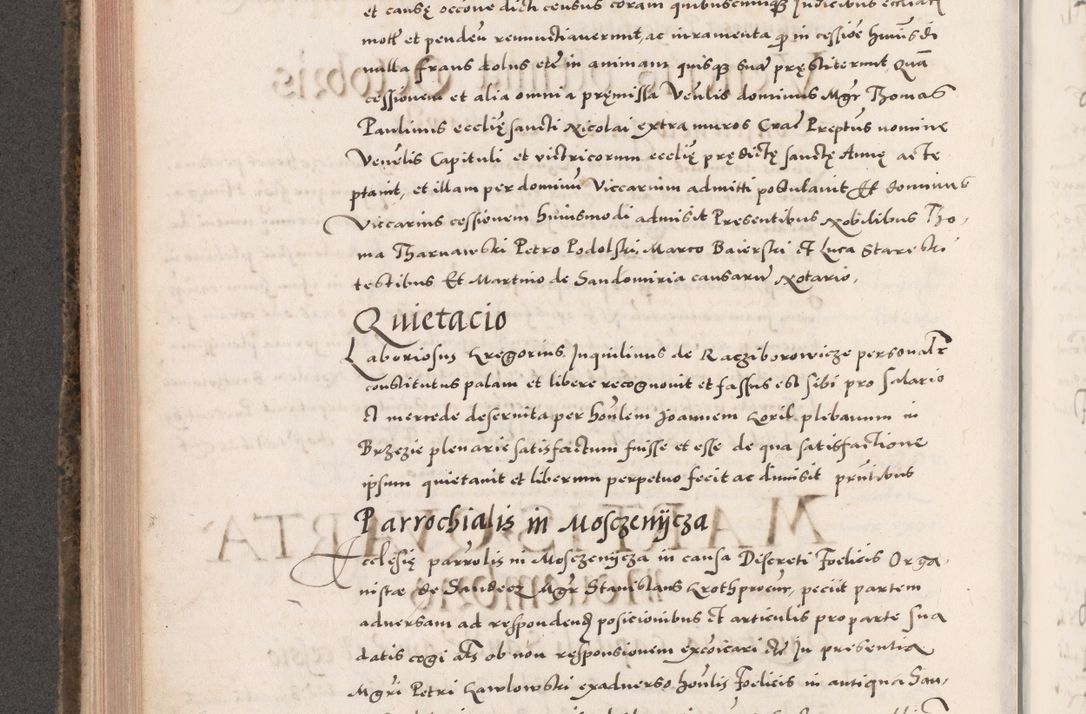 et causę occõne dicti census coram quibuscumqꝫ Iudicibus
mott et pendeñ renunctiaverunt, ac iuramenta ꝙ in cessiõe huiusdi
nulla fraus dolus etc̃ in animam quisqꝫ suã pręstiterunt, Quã
cessionem et alia omnia pręmissa Veñlis dominus Mgr̃ Thomas
Paulinus ecclię sancti Nicolai extra muros Crac̃ Preptus nomine
Venẽlis Capituli et victricorum ecclię prędictę sanctę Annę acce
ptavit, et illam per dominũ Viccarium admitti postulavit Et dominus
Viccarius cessionem huiusmodi admisit Presentibus Nobilibus Tho,
ma Tharnawski Petro Podolski, Marco Baierski et Luca Starzeski
testibus Et Martino de Sandomiria causarũ Notario,
Quietacio
Laboriosus Gregorius Inquilinus de Racziborowicze personalr̃
constitutus palam et libere recognovit et fassus est sibi pro salario
et mercede deservita per honlem Joannem Goril plibanum in
Brzezie plenarie satisfactum fuisse et esse de qua satisfactione
ipsum quietavit et liberum perpetuo fecit ac dimisit pñtibus
Parrochialis in Mosczenijcza
Ecclesię parrolis in Mosczenijcza in causa Discreti Foelicis Orga,
nistae de Sandecz Mgr̃ Stanislaus Grothprocur, peciit partem
adversam ad respondendũ posicionibus et articulis pro parte sua
datis cogi als ob non responsionem excõicari etc̃ In presentia
Mgri Petri Gawlowski exadverso honlis Foelicis in antiqua San,